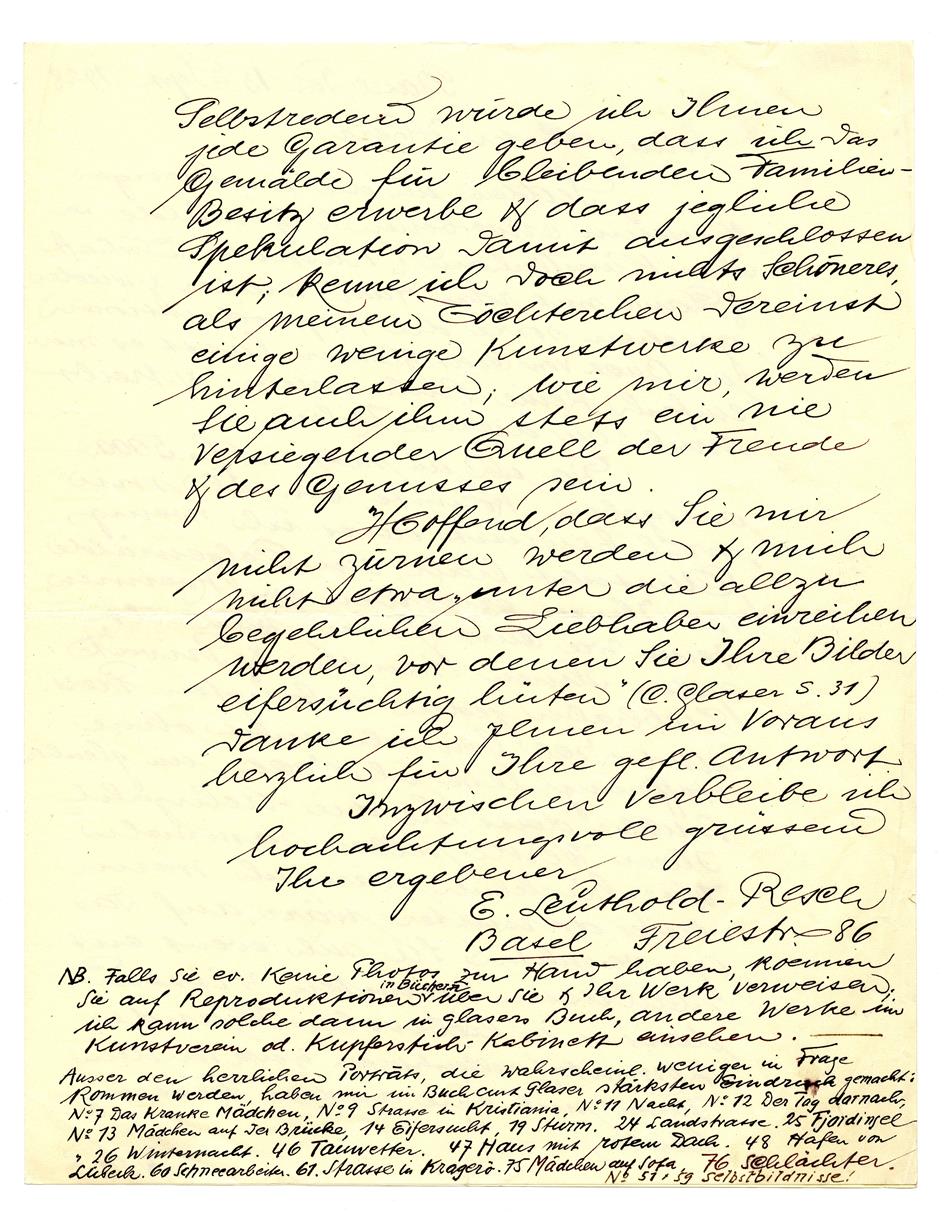 Selbstredend würde ich Ihnen
jede Garantie geben, dass ich das
Gemälde für bleibenden Familien-
Besitz erwerbe & dass jegliche
Spekulation damit ausgeschlossen
ist; kenne ich doch nichts Schöneres,
als meinem Töchterchen dereinst
einige wenige Kunstwerke zu
hinterlassen; wie mir, werden
sie auch ihm stets ein nie
versiegender Quell der Freude
& des Genusses sein.
Hoffend, dass Sie mir
nicht zürnen werden & mich
nicht etwa „unter die allzu
begehrlichen Liebhaber einreihen
werden, vor denen Sie Ihre Bilder
eifersüchtig hüten" (C. Glaser S. 31)
danke ich Ihnen im Voraus
herzlich für Ihre gefl. Antwort
Inzwischen verbleibe ich
hochachtungsvoll grüssend
Ihr ergebener
E. Leuthold-Resch
Basel Freiestr. 86
NB. Falls Sie ev. keine Photos zur Hand haben, koennen
Sie auf Reproduktionen in Büchern über Sie & Ihr Werk verweisen;
ich kann solche dann in Glasers Buch, andere Werke im
Kunstverein od. Kupferstich-Kabinett einsehen.
Ausser den herrlichen Porträts, die wahrscheinl. weniger in Frage
kommen werden, haben mir im Buch Curt Glaser stärksten Eindruck gemacht:
No 7 Das Kranke Mädchen, No 9 Strasse in Kristiania, No 11 Nacht, No 12 Der Tag darnach,
No 13 Mädchen auf der Brücke, 14 Eifersucht, 19 Sturm. 24 Landstrasse. 25 Fjordinsel
" 26 Winternacht. 46 Tauwetter. 47 Haus mit rotem Dach. 48 Hafen von
Lübeck. 60 Schneearbeiter. 61. Strasse in Kragerö. 75 Mädchen auf Sofa, 76 Schlächter.
No 51 & 59 Selbstbildnisse!